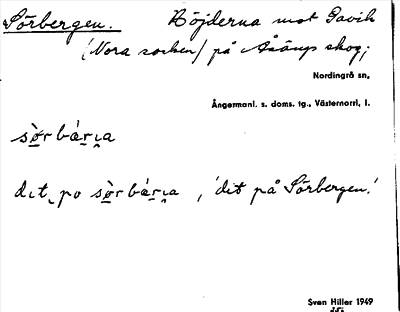 Sörbergen. Höjderna mot Gavik
(Nora socken) på Åsängs skog;
Nordingrå sn,
Ångermanl. s. doms. tg., Västernorrl, l.
sø̀rbæ̀rı̨a
dıt po sø̀rbæ̀rı̨a, 'dit på Sörbergen.'
Sven Hiller 1949